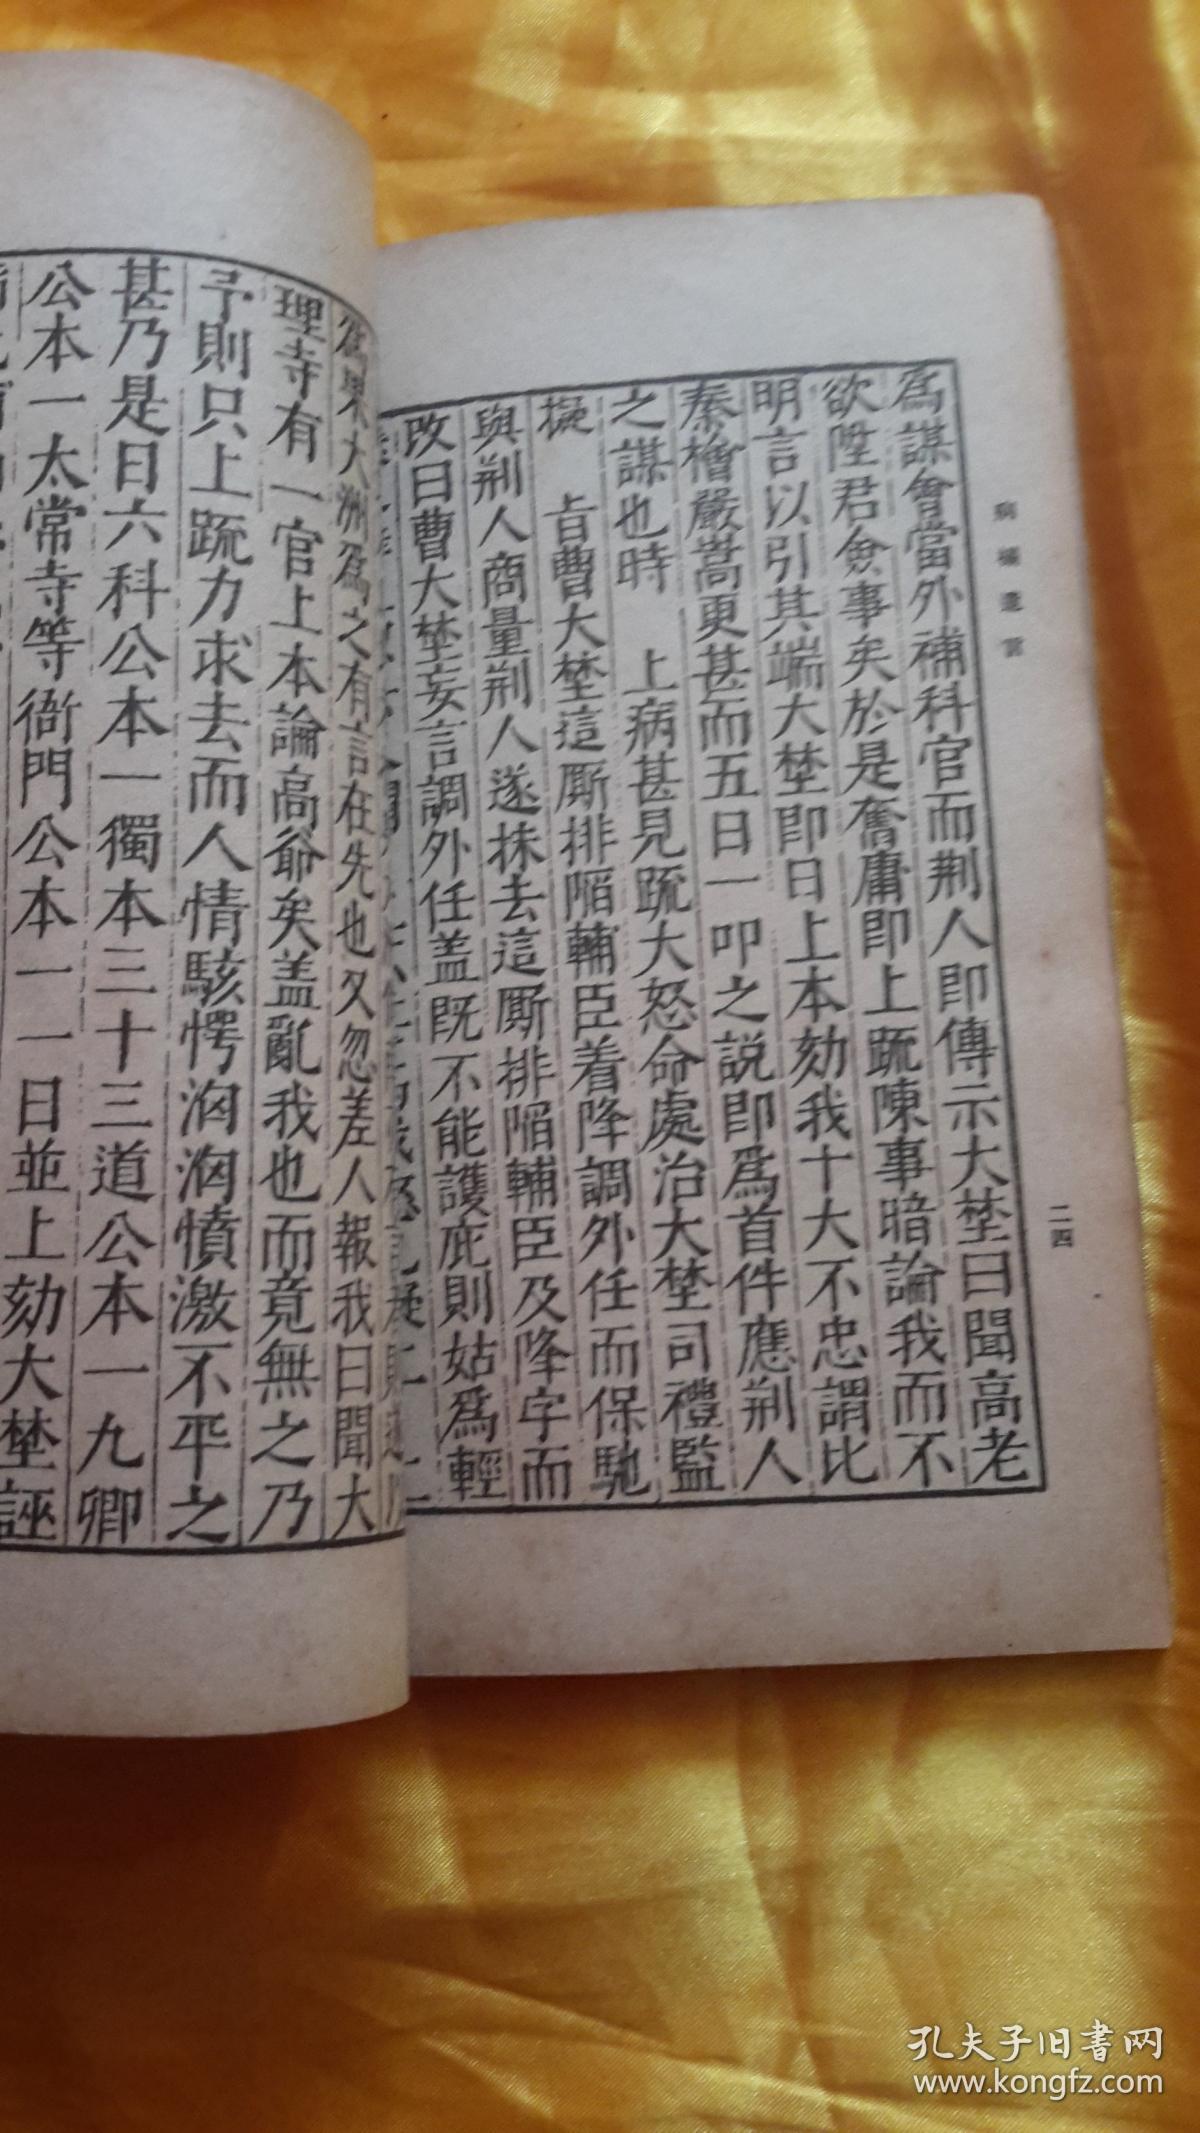 病榻遺言
二四
爲謀會當外補科官而荆人即傳示大埜曰聞高老
欲陞君僉事矣於是奮庸即上䟽陳事暗論我而不
明言以引其端大埜即日上本劾我十大不忠謂比
秦檜嚴嵩更甚而五日一叩之説即爲首件應荆人
之謀也時 上病甚見䟽大怒命處治大埜司禮監
擬 旨曹大埜這厮排陷輔臣着降調外任而保馳
與荆人商量荆人遂抹去這厮排陷輔臣及降字而
改曰曹大埜妄言調外任盖既不能護庇則姑爲輕
大洲爲之有言在先也又忽差人報我曰聞大
理寺有一官上本論高爺矣盖亂我也而竟無之乃
予則只上䟽力求去而人情駭愕洶洶憤激不平之
甚乃是日六科公本一獨本三十三道公本一九卿
公本一太常寺等衙門公本一一日並上劾大埜誣
孔夫子旧书网
www.kongfz.com